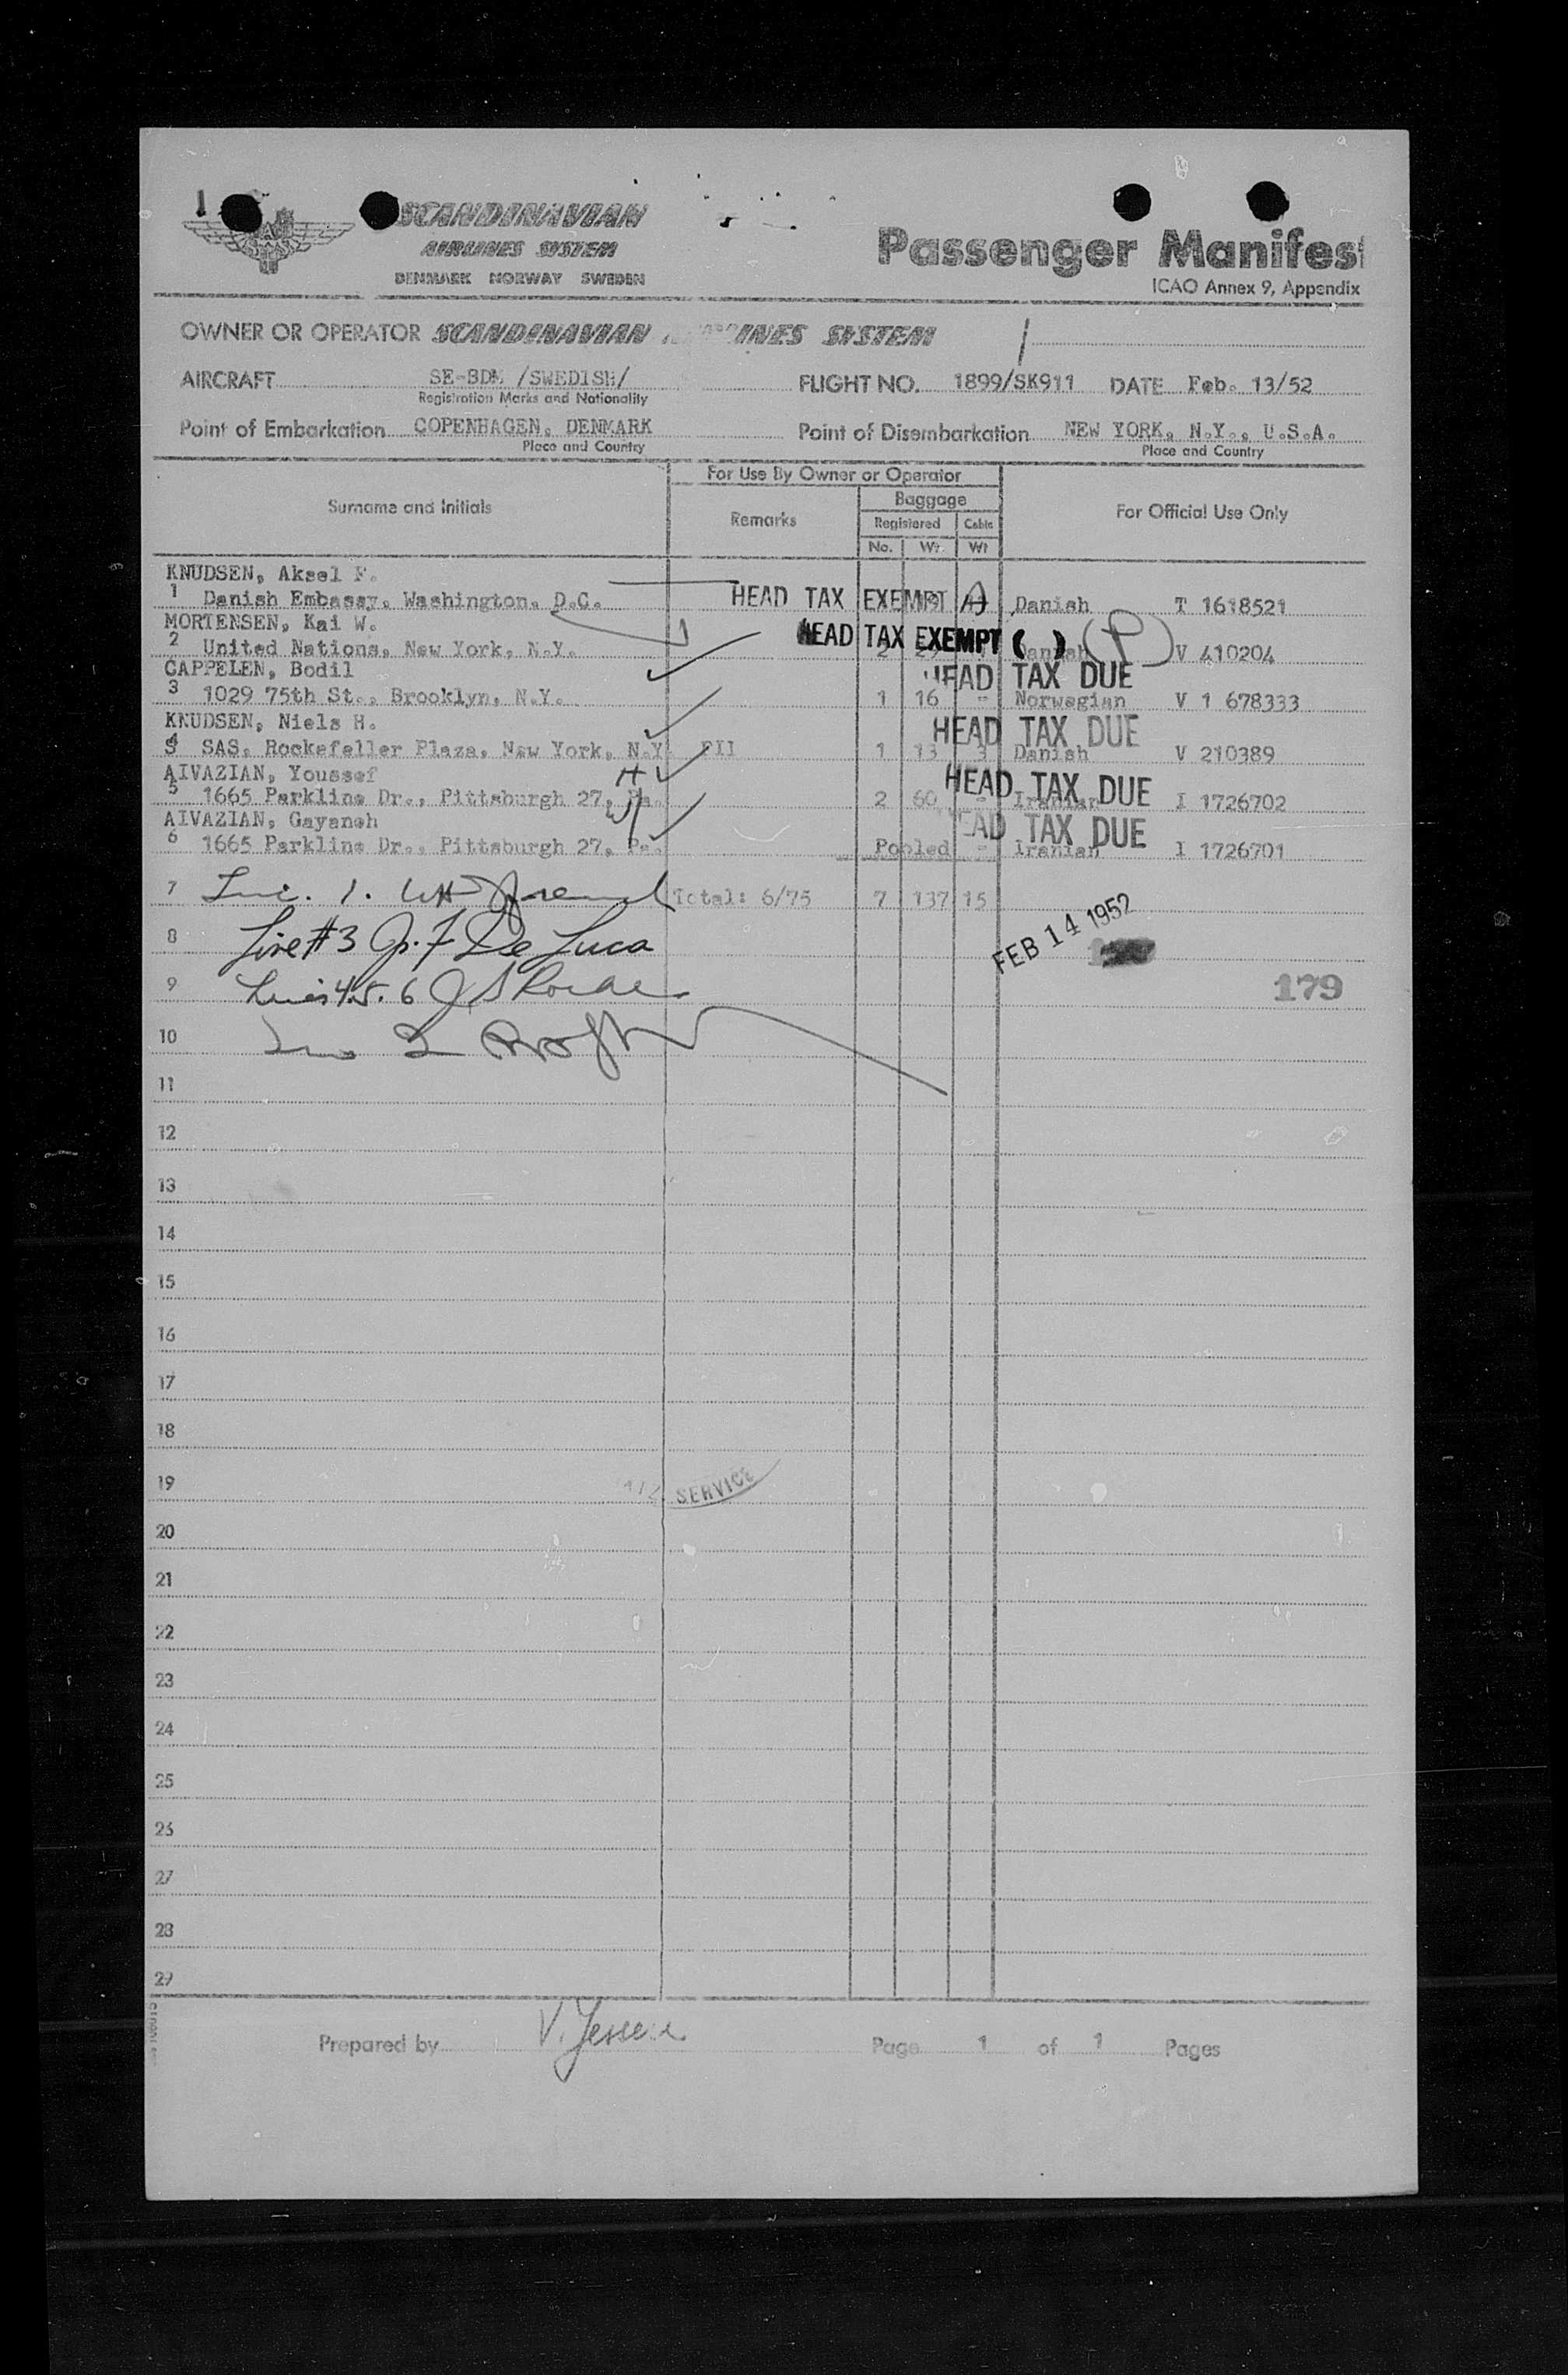 SCANDINAVIAN
AIRLINES SYSTEM
DENMARK NORWAY SWEDEN
Passenger Manifest
ICAO Annex 9, Appendix
OWNER OR OPERATOR SCANDINAVIAN INES SYSTEM
AIRCRAFT SE-BDM /SWEDISH/ FLIGHT NO. 1899/SK911 DATE Feb. 13/52
Registration Marks and Nationality
Point of Embarkation COPENHAGEN, DENMARK Point of Disembarkation NEW YORK, N.Y., U.S.A.
Place and Country Place and Country
For Use By Owner or Operator
Surname and Initials Remarks Baggage For Official Use Only
Registered Cabin
No. Wt Wt
KNUDSEN, Aksel F.
1 Danish Embassy, Washington, D.C. HEAD TAX EXEMPT A Danish T 1618521
MORTENSEN, Kai W. HEAD TAX EXEMPT ( ) (P)
2 United Nations, New York, N.Y. 2 Danish V 410204
CAPPELEN, Bodil HEAD TAX DUE
3 1029 75th St., Brooklyn, N.Y. 1 16 - Norwegian V 1 678333
KNUDSEN, Niels H. HEAD TAX DUE
4 SAS, Rockefeller Plaza, New York, N.Y. 1 13 3 Danish V 210389
AIVAZIAN, Youssef H HEAD TAX DUE
5 1665 Parkline Dr., Pittsburgh 27, Pa. 2 60 - Iranian I 1726702
AIVAZIAN, Gayaneh W HEAD TAX DUE
6 1665 Parkline Dr., Pittsburgh 27, Pa. Pooled - Iranian I 1726701
7 Total: 6/75 7 137 15
8 Line #3 De Luca FEB 14 1952
9 4.5.6 179
10
11
12
13
14
15
16
17
18
19 SERVICE
20
21
22
23
24
25
26
27
28
29
Prepared by V. Jessen Page 1 of 1 Pages